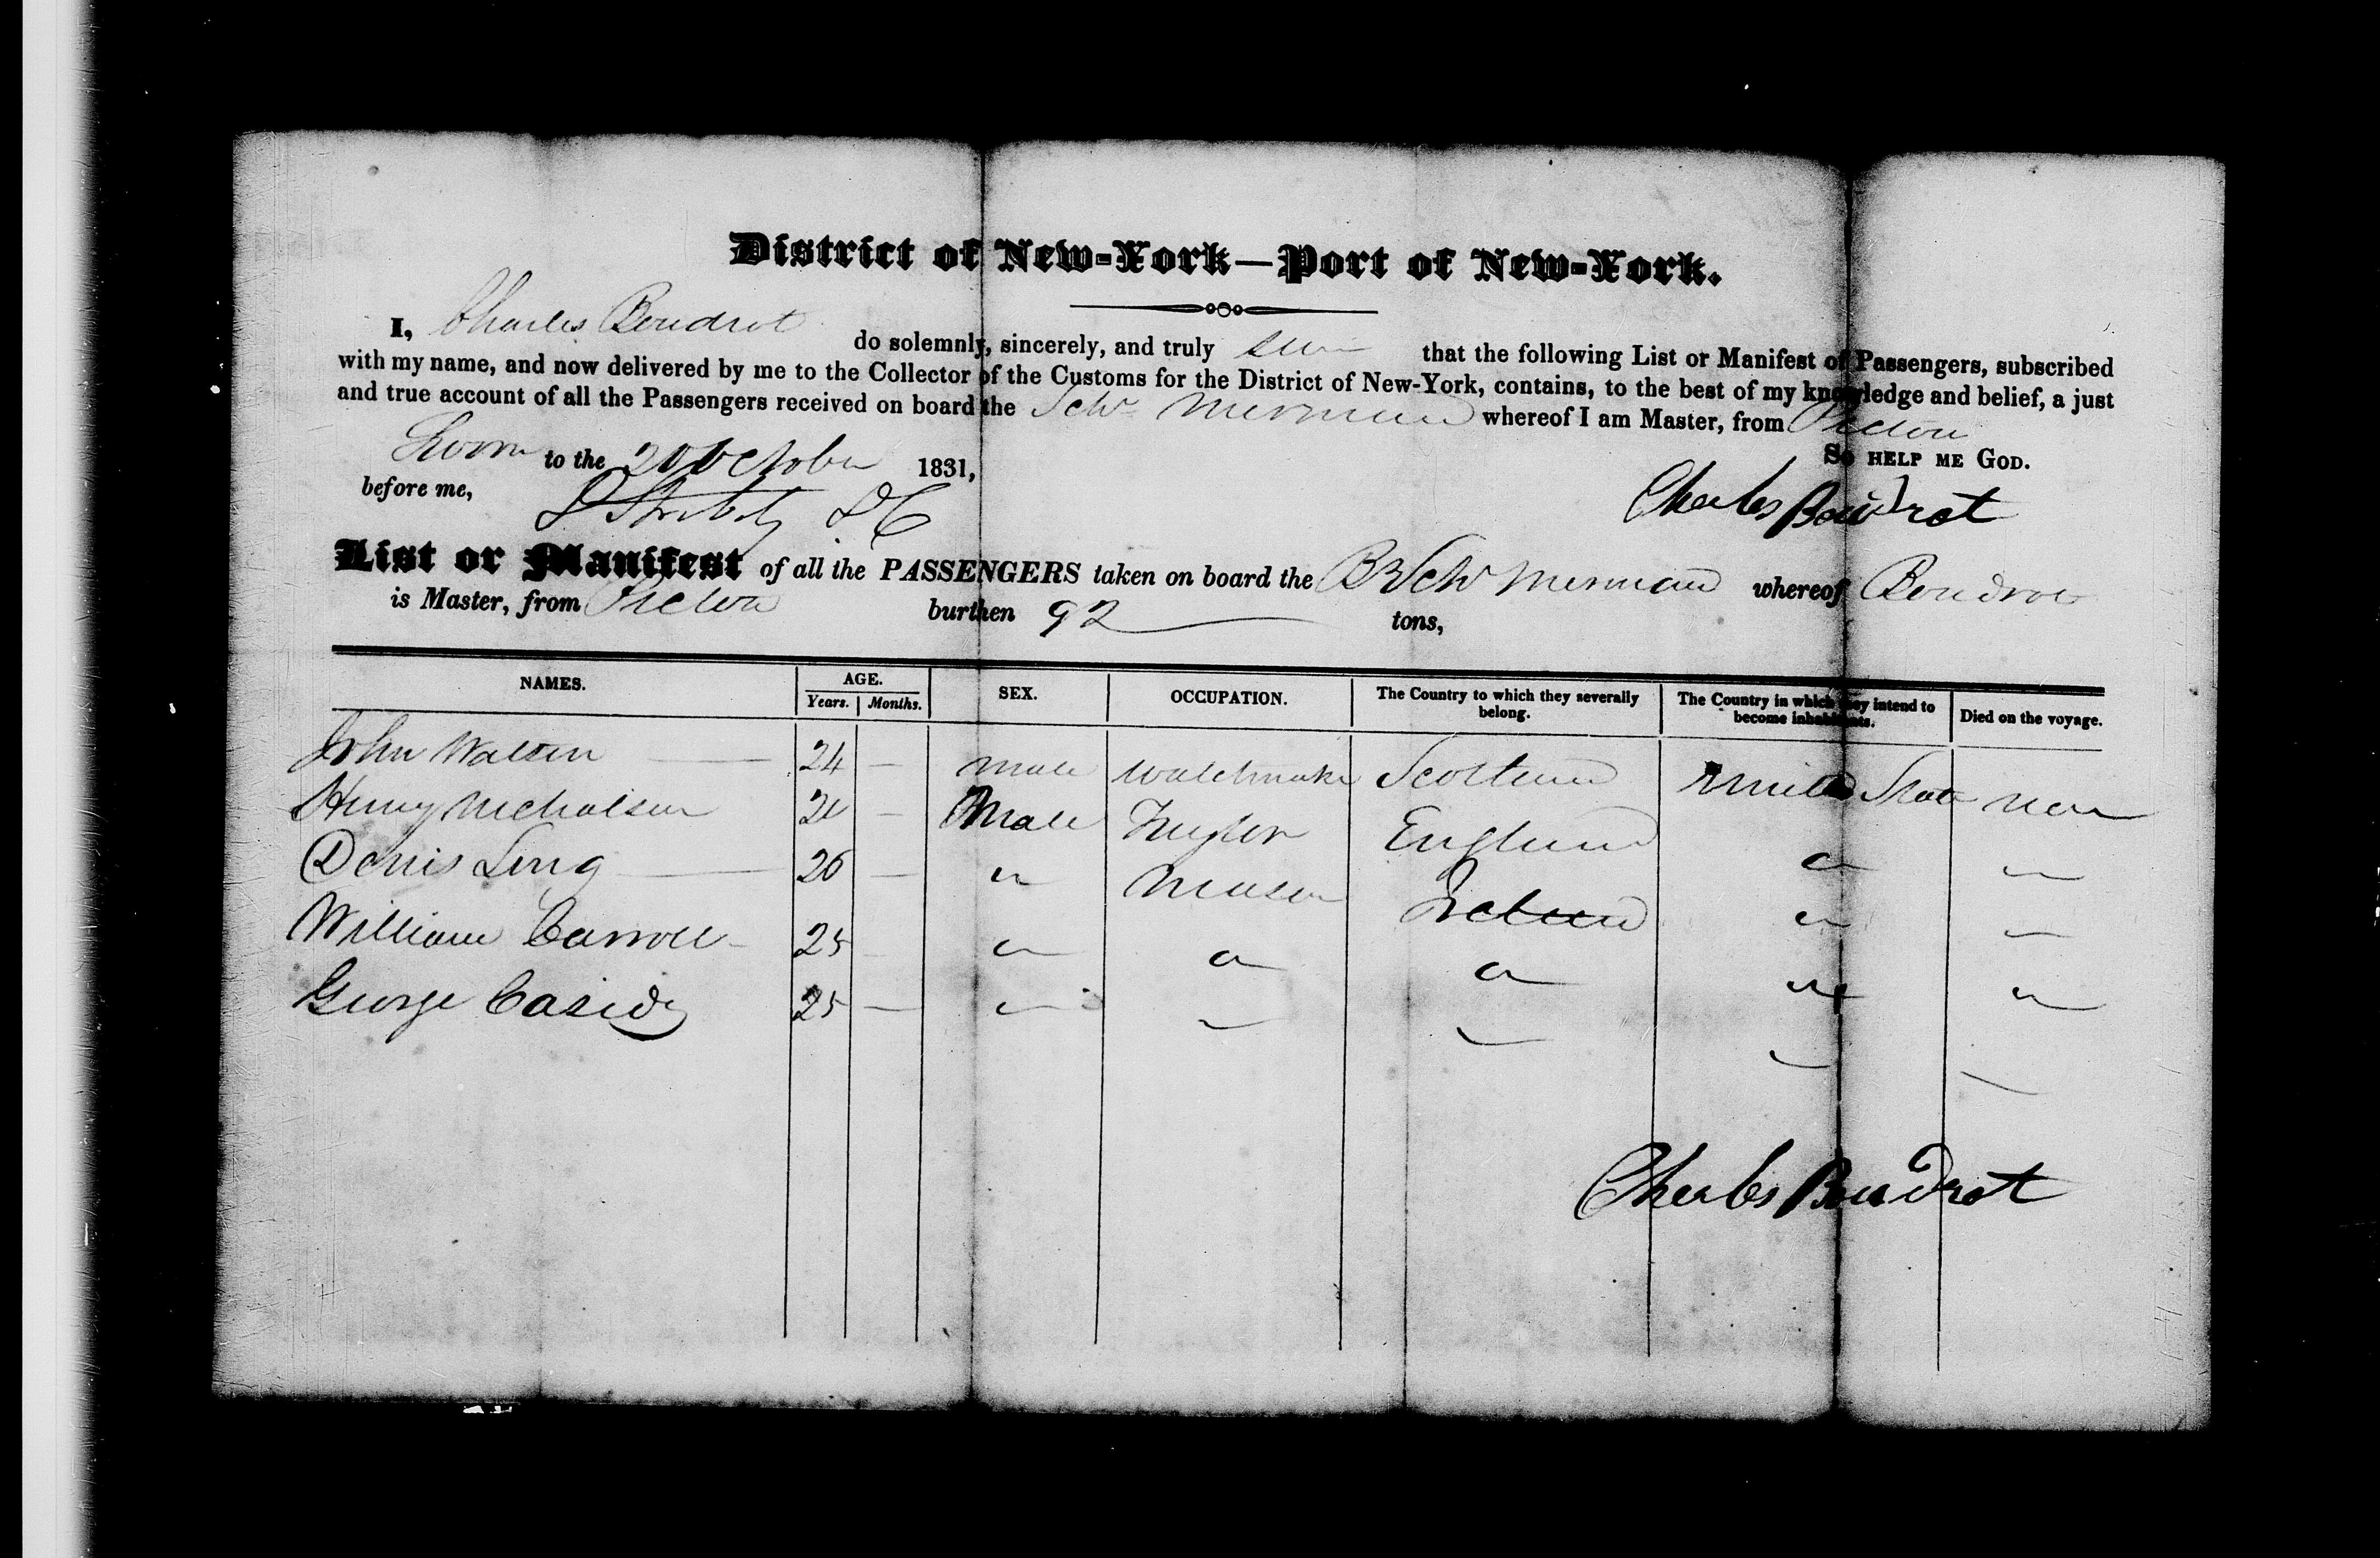 District of New-York—Port of New-York.
I, Charles Boudrot do solemnly, sincerely, and truly that the following List or Manifest of Passengers, subscribed
with my name, and now delivered by me to the Collector of the Customs for the District of New-York, contains, to the best of my knowledge and belief, a just
and true account of all the Passengers received on board the Schr whereof I am Master, from Pictou
Sworn to the 20 October 1831, So HELP ME GOD.
before me, Charles Boudrot
List or Manifest of all the PASSENGERS taken on board the Br Schr whereof Boudrot
is Master, from Pictou burthen 92 tons,
NAMES. AGE. SEX. OCCUPATION. The Country to which they severally belong. The Country in which they intend to become inhabitants. Died on the voyage.
Years. Months.
John Watson — 24 — male Watchmaker Scotland United State non
Henry Nicholson — Male Taylor England " "
Denis Ling — 26 — " Mason Ireland " "
William Carroll 25 — " " " " "
George Casidy 25 — " " " " "
Charles Boudrot